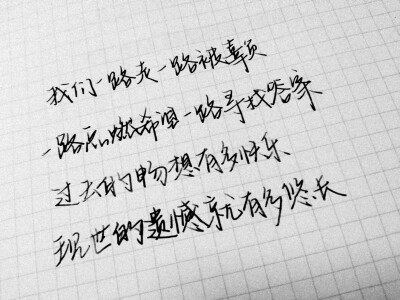 我们一路走一路被辜负
一路点燃希望一路寻找答案
过去的畅想有多快乐
现世的遗憾就有多悠长